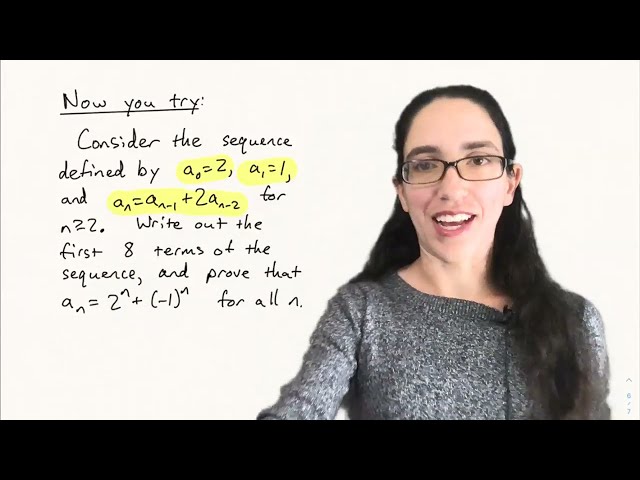 Now you try:
Consider the sequence
defined by a₀=2, a₁=1,
and aₙ=aₙ₋₁+2aₙ₋₂ for
n≥2. Write out the
first 8 terms of the
sequence, and prove that
aₙ = 2ⁿ+(-1)ⁿ for all n.
6
/
7